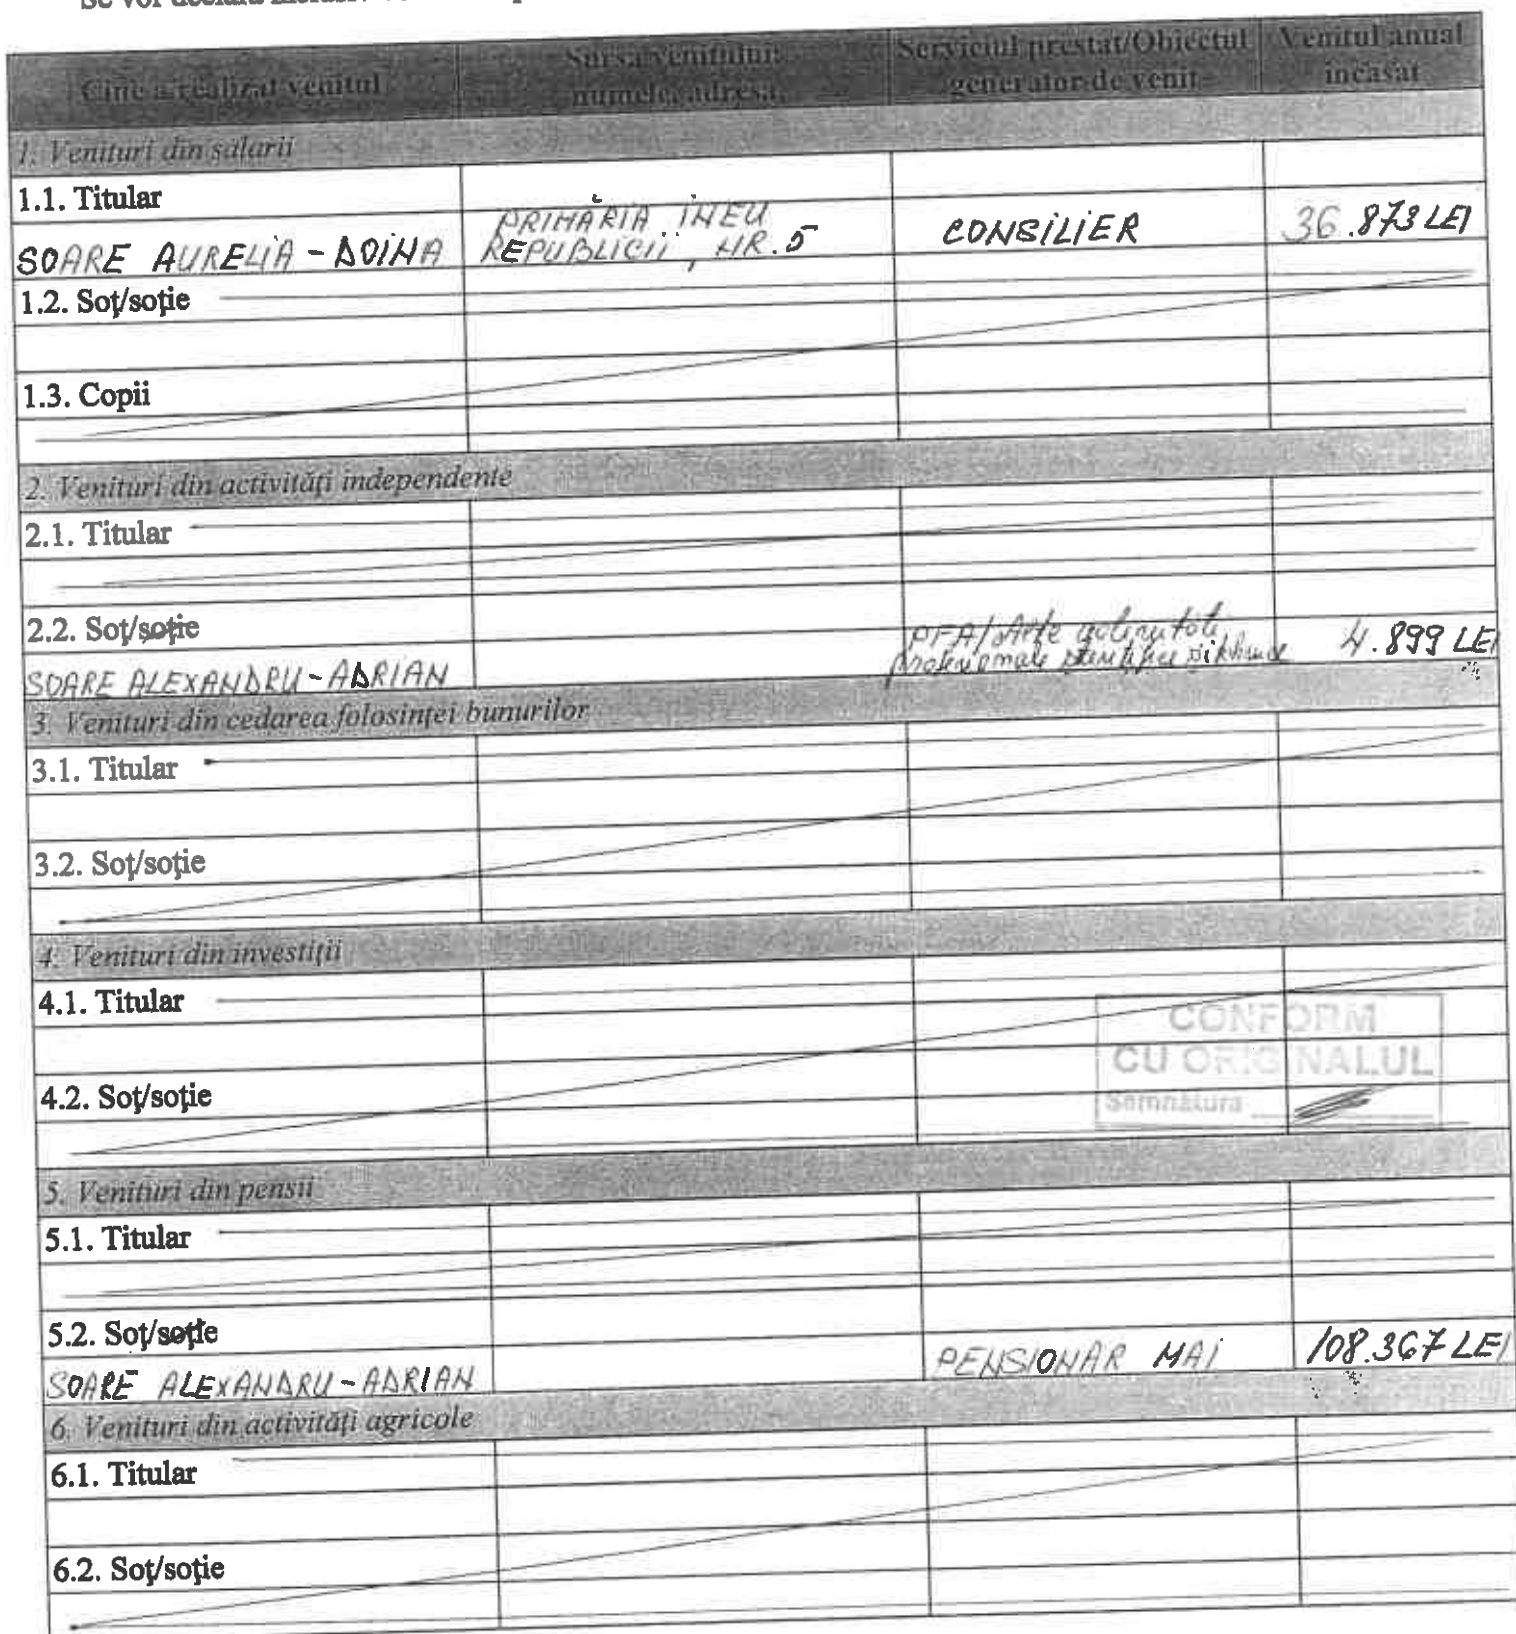 Cine a realizat venitul
Sursa venitului:
numele, adresa
Serviciul prestat/Obiectul
generator de venit
Venitul anual
încasat
1. Venituri din salarii
1.1. Titular
SOARE AURELIA-DOINA
PRIMĂRIA INEU
REPUBLICII, NR. 5
CONSILIER
36.873 LEI
1.2. Soț/soție
1.3. Copii
2. Venituri din activități independente
2.1. Titular
2.2. Soț/soție
SOARE ALEXANDRU-ADRIAN
PFA/Alte activități
profesionale științifice și tehnice
4.899 LEI
3. Venituri din cedarea folosinței bunurilor
3.1. Titular
3.2. Soț/soție
4. Venituri din investiții
4.1. Titular
CONFORM
CU ORIGINALUL
Semnătura
4.2. Soț/soție
5. Venituri din pensii
5.1. Titular
5.2. Soț/soție
SOARE ALEXANDRU-ADRIAN
PENSIONAR MAI
108.367 LEI
6. Venituri din activități agricole
6.1. Titular
6.2. Soț/soție